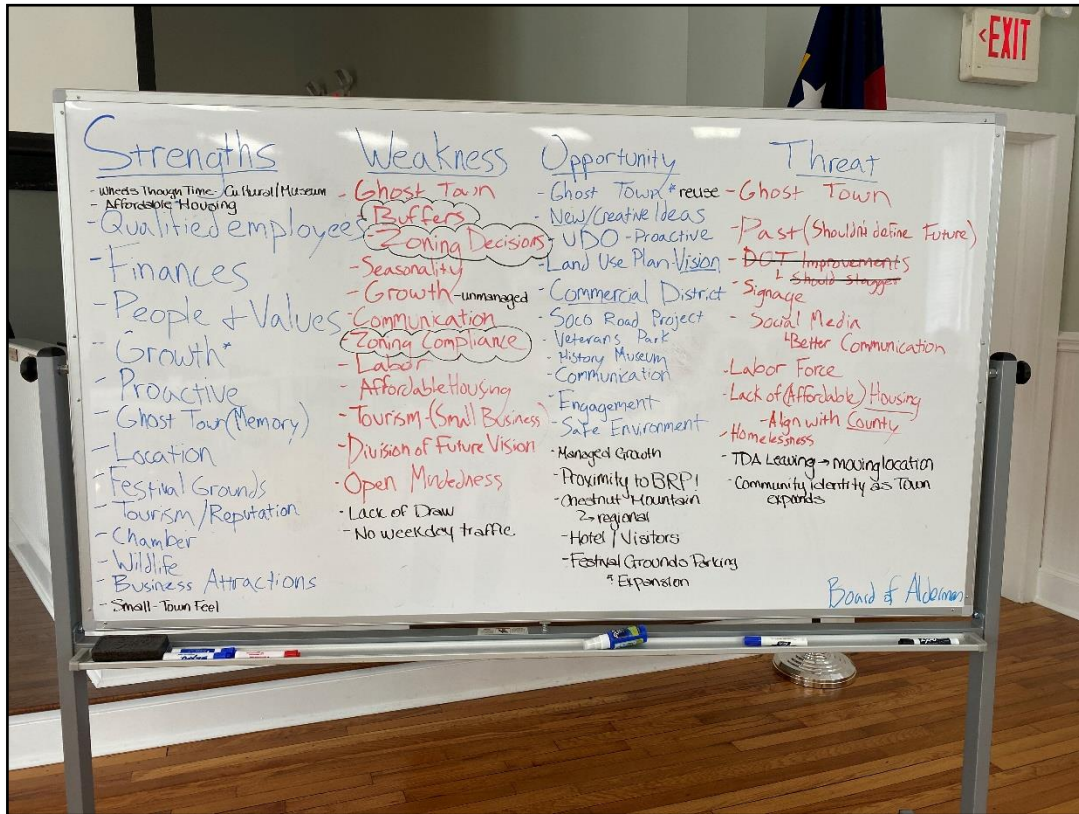 <EXIT
Strengths
- Wheels Though Time- Cultural/Museum
- Affordable Housing
- Qualified employees
- Finances
- People + Values
- Growth*
- Proactive
- Ghost Town (Memory)
- Location
- Festival Grounds
- Tourism/Reputation
- Chamber
- Wildlife
- Business Attractions
- Small-Town Feel
Weakness
- Ghost Town
- Buffers
- Zoning Decisions
- Seasonality
- Growth - unmanaged
- Communication
- Zoning Compliance
- Labor
- Affordable Housing
- Tourism-(Small Business)
- Division of Future Vision
- Open Mindedness
- Lack of Draw
- No weekday traffic
Opportunity
- Ghost Town * reuse
- New/Creative Ideas
- UDO - Proactive
- Land Use Plan-Vision
- Commercial District
- Soco Road Project
- Veterans Park
- History Museum
- Communication
- Engagement
- Safe Environment
- Managed Growth
- Proximity to BRP!
- Chestnut Mountain
↳ regional
- Hotel / Visitors
- Festival Grounds Parking
* Expansion
Threat
- Ghost Town
- Past (Shouldn't define Future)
- DOT Improvements
↳ Should stagger
- Signage
- Social Media
↳ Better Communication
- Labor Force
- Lack of (Affordable) Housing
- Align with County
- Homelessness
- TDA Leaving → moving location
- Community Identity as Town
expands
Board of Aldermen